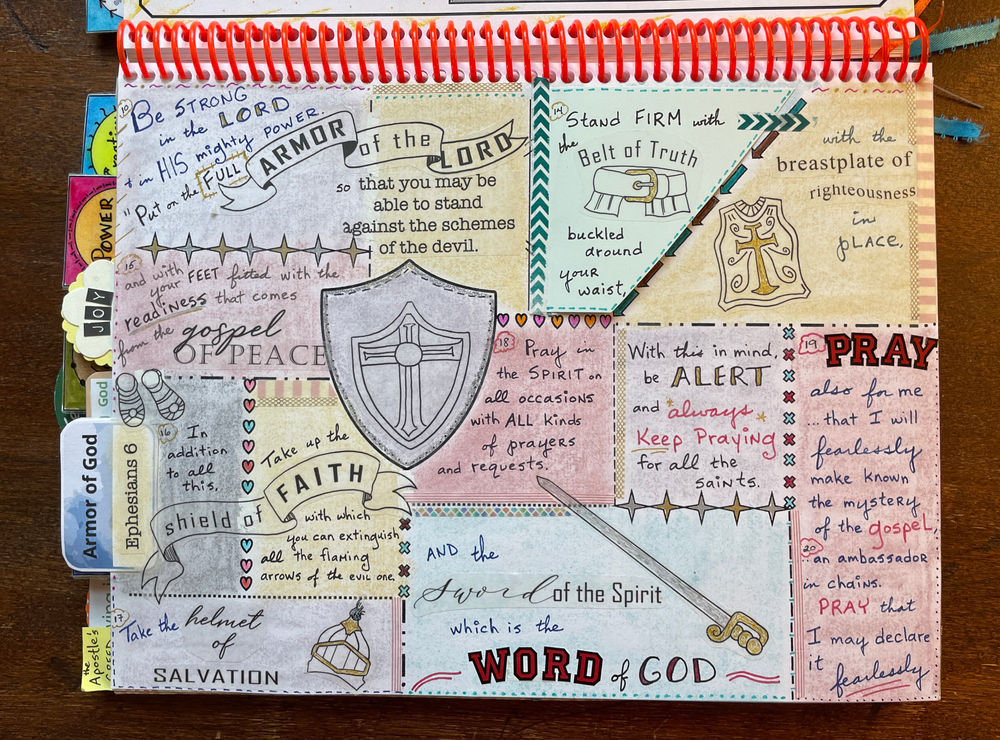 10
Be STRONG
in the LORD
& in HIS mighty POWER.
"Put on the FULL ARMOR of the LORD
so that you may be
able to stand
against the schemes
of the devil.
14
Stand FIRM with
the Belt of Truth
buckled
around
your
waist,
with the
breastplate of
righteousness
in
place,
15
and with
your FEET fitted with the
readiness that comes
from the gospel
OF PEACE
16
In
addition
to all
this,
Take up the
shield of FAITH
with which
you can extinguish
all the flaming
arrows of the evil one.
17
Take the helmet
of
SALVATION
AND the
sword of the Spirit
which is the
WORD of GOD
18
Pray in
the SPIRIT on
all occasions
with ALL kinds
of prayers
and requests.
With this in mind,
be ALERT
and always
Keep Praying
for all the
saints.
19
PRAY
also for me
...that I will
fearlessly
make known
the mystery
of the gospel,
20
an ambassador
in chains.
PRAY that
I may declare
it fearlessly
POWER
JOY
God
Armor of God
Ephesians 6
the
Apostle's
CREED